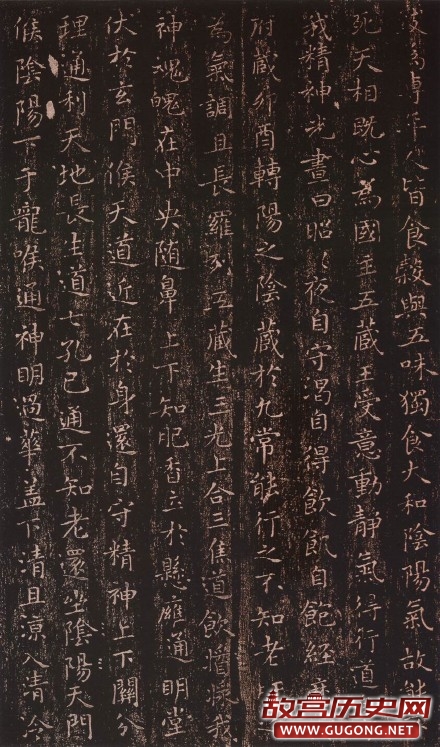 為專年人皆食穀與五味獨食大和陰陽氣故能
死天相既心為國主五藏王受意動靜氣得行道
我精神光晝日昭〻夜自守渴自得飲飢自飽經
府藏卯酉轉陽之陰藏於九常能行之不知老
為氣調且長羅列五藏生三光上合三焦道飲醬漿我
神魂魄在中央隨鼻上下知肥香立於懸雍通明堂
伏於玄門候天道近在於身還自守精神上下關分
理通利天地長生道七孔已通不知老還坐陰陽天門
候陰陽下于嚨喉通神明過華蓋下清且涼入清泠
故宫历史网
WWW.GUGONG.NET